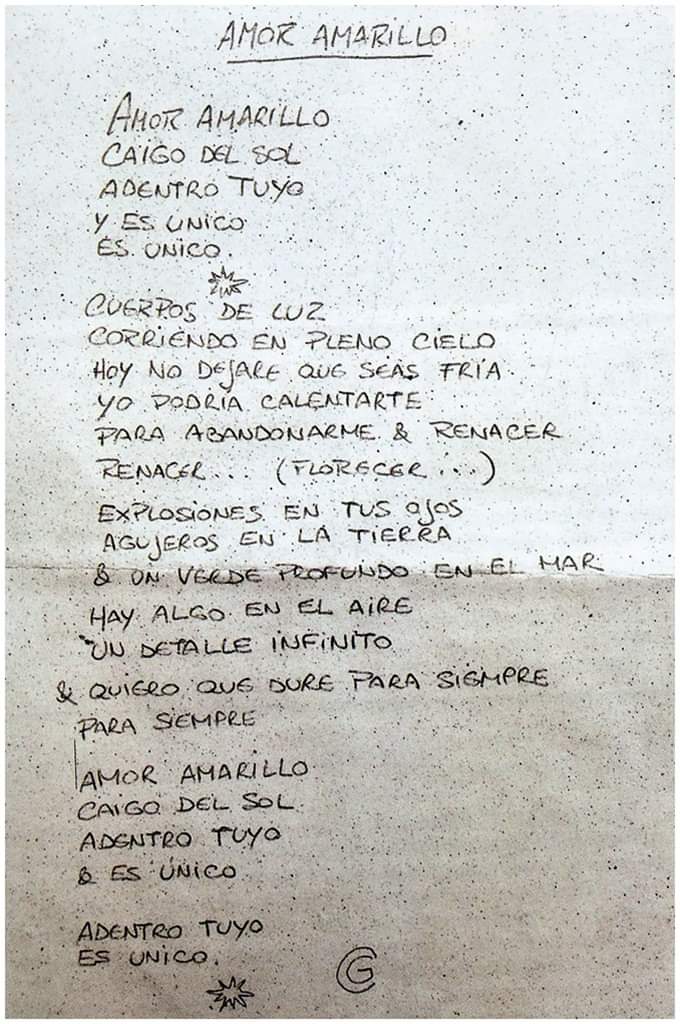 AMOR AMARILLO
AMOR AMARILLO
CAIGO DEL SOL
ADENTRO TUYO
Y ES UNICO
ES UNICO.
CUERPOS DE LUZ
CORRIENDO EN PLENO CIELO
HOY NO DEJARE QUE SEAS FRÍA
YO PODRÍA CALENTARTE
PARA ABANDONARME & RENACER
RENACER... (FLORECER...)
EXPLOSIONES EN TUS OJOS
AGUJEROS EN LA TIERRA
& UN VERDE PROFUNDO EN EL MAR
HAY ALGO EN EL AIRE
UN DETALLE INFINITO
& QUIERO QUE DURE PARA SIEMPRE
PARA SIEMPRE
AMOR AMARILLO
CAIGO DEL SOL
ADENTRO TUYO
& ES ÚNICO
ADENTRO TUYO
ES UNICO.
CG